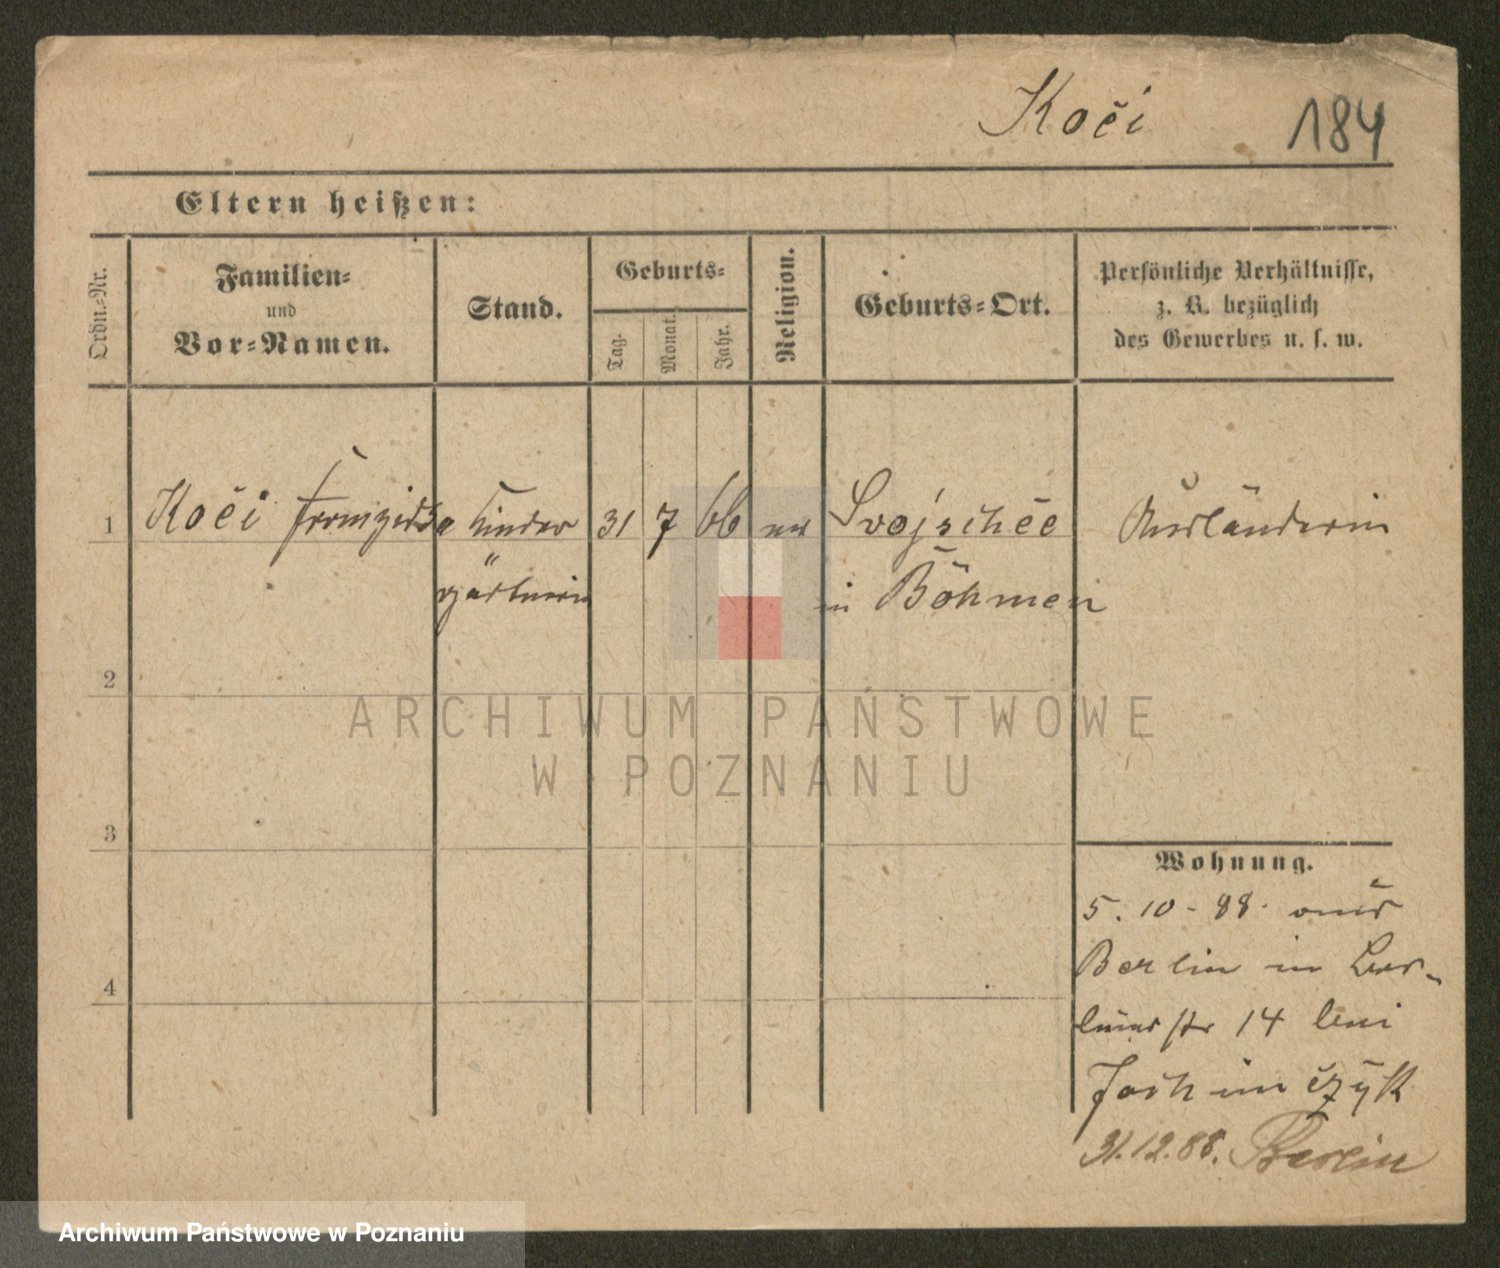 Koči 184
Eltern heißen:
Ordn.-Nr.
Familien-
und
Vor-Namen.
Stand.
Geburts-
Tag.
Monat.
Jahr.
Religion.
Geburts-Ort.
Persönliche Verhältnisse,
z. B. bezüglich
des Gewerbes u. s. w.
1 Koči Franziska Kinder 31 7 66 Svojschče Ausländerin
gärtnerin in Böhmen
2
3
4
Wohnung.
5. 10 - 88. aus
Berlin in Ber-
linerstr 14 bei
Joch im czyk
31.12.88. Berlin
ARCHIWUM PAŃSTWOWE
W POZNANIU
Archiwum Państwowe w Poznaniu